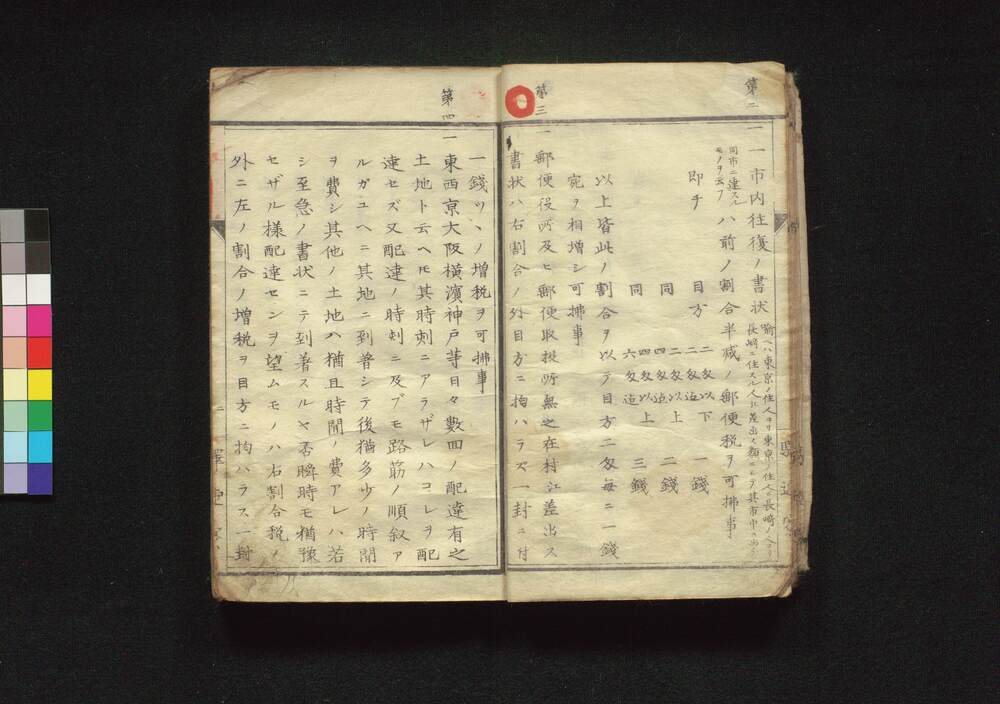 第二
一 市内往復ノ書状
喩ヘハ東京ノ住人ヨリ東京ノ住人ニ長崎ノ人ヨリ
長崎ニ住スル人ニ差出ス類ニシテ其市中ヨリ出シ
同市ニ達スル
モノヲ云フ
ハ前ノ割合半減ノ郵便税ヲ可拂事
即チ 目方 二匁以下 一錢
同 二匁以上 四匁迄 二錢
同 四匁以上 六匁迄 三錢
以上皆此ノ割合ヲ以テ目方二匁毎ニ一錢
宛ヲ相増シ可拂事
第三
一 郵便役所及ヒ郵便取扱所無之在村江差出ス
書状ハ右割合ノ外目方ニ拘ハラズ一封ニ付
一錢ツヽノ増税ヲ可拂事
第四
一 東西京大阪橫濱神戸等日々數回ノ配達有之
土地ト云ヘ𪜈其時刻ニアラザレハコレヲ配
達セズ又配達ノ時刻ニ及ブモ路筋ノ順叙ア
ルガユヘニ其地ニ到着シテ後猶多少ノ時間
ヲ費シ其他ノ土地ハ猶且時間ノ費アレハ若
シ至急ノ書状ニテ到着スルヤ否瞬時モ猶豫
セザル様配達センヲ望ムモノハ右割合税ノ
外ニ左ノ割合ノ増税ヲ目方ニ拘ハラス一封